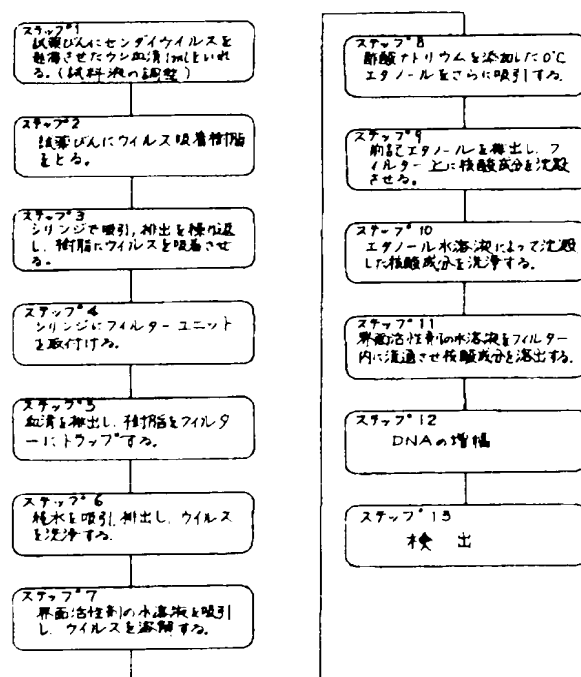 ステップ1
試薬びんにセンダイウイルスを
懸濁させたウシ血清1mlをいれ
る。(試料液の調整)
ステップ2
試薬びんにウィルス吸着樹脂
をとる。
ステップ3
シリンジで吸引,排出を繰り返
し、樹脂にウィルスを吸着させ
る。
ステップ4
シリンジにフィルターユニット
を取付ける。
ステップ5
血清を排出し、樹脂をフィルタ
ーにトラップする。
ステップ6
純水を吸引,排出し、ウイルス
を洗浄する。
ステップ7
界面活性剤の水溶液を吸引
し、ウイルスを溶解する。
ステップ8
酢酸ナトリウムを添加した0℃
エタノールをさらに吸引する。
ステップ9
前記エタノールを排出し、フ
ィルター上に核酸成分を沈殿
させる。
ステップ10
エタノール水溶液によって沈殿
した核酸成分を洗浄する。
ステップ11
界面活性剤の水溶液をフィルター
内に流通させ核酸成分を溶出する。
ステップ12
DNAの増幅
ステップ13
検出